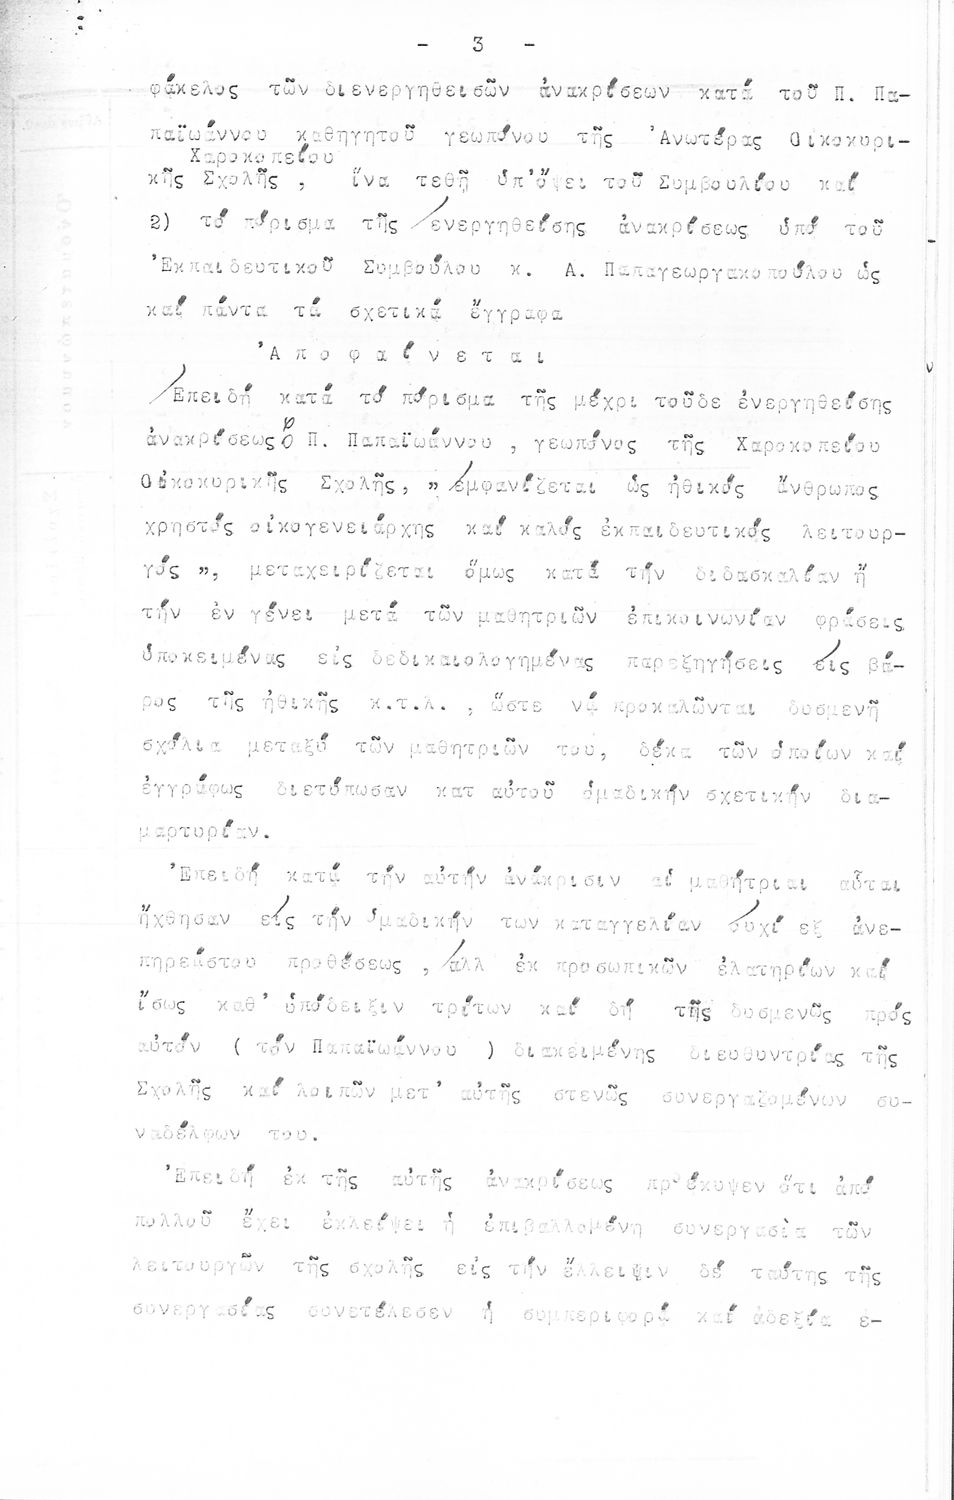 - 3 -
φάκελος τῶν διενεργηθεισῶν ἀνακρίσεων κατά τοῦ Π. Πα-
παϊωάννου καθηγητοῦ γεωπόνου τῆς Ἀνωτέρας Οἰκοκυρι-
Χαροκοπείου
κῆς Σχολῆς , ἵνα τεθῇ ὑπ'ὄψει τοῦ Συμβουλίου καί
2) τό πόρισμα τῆς ἐνεργηθείσης ἀνακρίσεως ὑπό τοῦ
Ἐκπαιδευτικοῦ Συμβούλου κ. Α. Παπαγεωργακοπούλου ὡς
καί πάντα τά σχετικά ἔγγραφα
Ἀ π ο φ α ί ν ε τ α ι
Ἐπειδή κατά τό πόρισμα τῆς μέχρι τοῦδε ἐνεργηθείσης
ἀνακρίσεως ὁ Π. Παπαϊωάννου , γεωπόνος τῆς Χαροκοπείου
Οἰκοκυρικῆς Σχολῆς, " ἐμφανίζεται ὡς ἠθικός ἄνθρωπος
χρηστός οἰκογενειάρχης καί καλός ἐκπαιδευτικός λειτουρ-
γός ", μεταχειρίζεται ὅμως κατά τήν διδασκαλίαν ἤ
τήν ἐν γένει μετά τῶν μαθητριῶν ἐπικοινωνίαν φράσεις
ὑποκειμένας εἰς δεδικαιολογημένας παρεξηγήσεις εἰς βά-
ρος τῆς ἠθικῆς κ.τ.λ. , ὥστε νά προκαλῶνται δυσμενῆ
σχόλια μεταξύ τῶν μαθητριῶν του, δέκα τῶν ὁποίων καί
ἐγγράφως διετύπωσαν κατ αὐτοῦ ὁμαδικήν σχετικήν δια-
μαρτυρίαν.
Ἐπειδή κατά τήν αὐτήν ἀνάκρισιν αἱ μαθήτριαι αὗται
ἤχθησαν εἰς τήν ὁμαδικήν των καταγγελίαν οὐχί εξ ἀνε-
πηρεάστου προθέσεως , ἀλλ ἐκ προσωπικῶν ἐλατηρίων καί
ἴσως καθ' ὑπόδειξιν τρίτων καί δή τῆς δυσμενῶς πρός
αὐτόν ( τόν Παπαϊωάννου ) διακειμένης διευθυντρίας τῆς
Σχολῆς καί λοιπῶν μετ' αὐτῆς στενῶς συνεργαζομένων συ-
ναδέλφων του.
Ἐπειδή ἐκ τῆς αὐτῆς ἀνακρίσεως προέκυψεν ὅτι ἀπό
πολλοῦ ἔχει ἐκλείψει ἡ ἐπιβαλλομένη συνεργασία τῶν
λειτουργῶν τῆς σχολῆς εἰς τήν ἔλλειψιν δέ ταύτης τῆς
συνεργασίας συνετέλεσεν ἡ συμπεριφορά καί ἀδεξία ἐ-